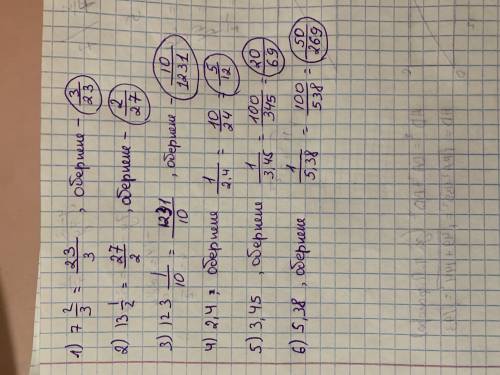 1) 7 2/3 = 23/3 , обернене - 3/23
2) 13 1/2 = 27/2 , обернене - 2/27
3) 123 1/10 = 1231/10 , обернене - 10/1231
4) 2,4 , обернене 1/2,4 = 10/24 = 5/12
5) 3,45 , обернене 1/3,45 = 100/345 = 20/69
6) 5,38 , обернене 1/5,38 = 100/538 = 50/269